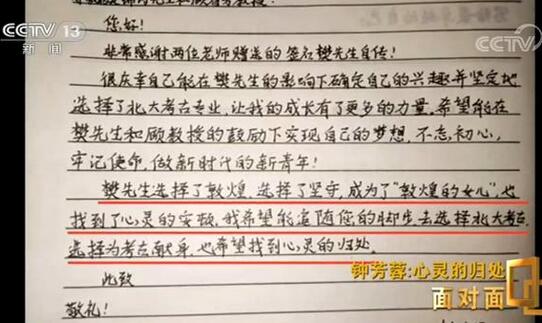 CCTV 13
新闻
CCTV
您好！
非常感谢两位老师赠送的签名樊先生自传！
很庆幸自己能在樊先生的影响下确定自己的兴趣并坚定地
选择了北大考古专业，让我的成长有了更多的力量。希望能在
樊先生和顾教授的鼓励下实现自己的梦想，不忘初心，
牢记使命，做新时代的新青年！
樊先生选择了敦煌，选择了坚守，成为了“敦煌的女儿”，也
找到了心灵的安顿。我希望能追随您的脚步，去选择北大考古，
选择为考古献身，也希望找到心灵的归处。
此致
敬礼！
钟芳蓉：心灵的归处
面对面